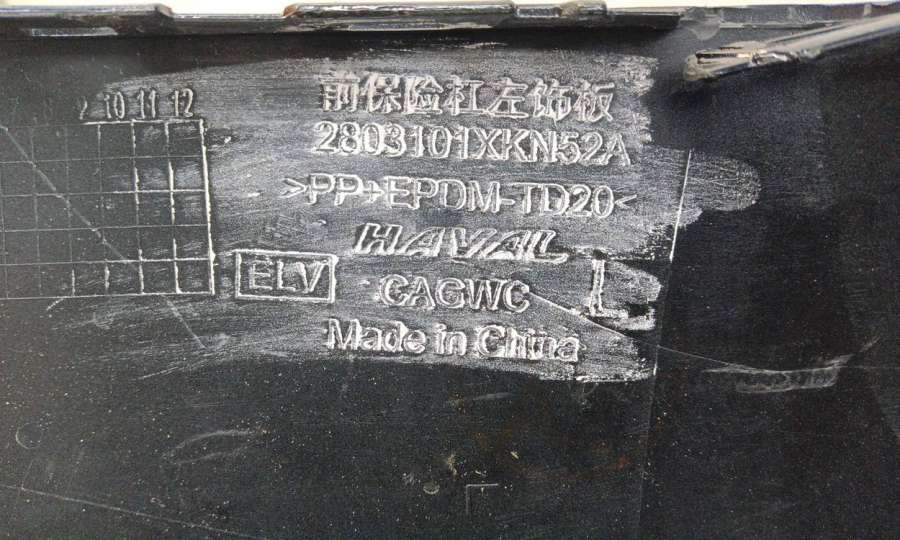 前保险杠左饰板
2803101XKN52A
>PP+EPDM-TD20<
HAVAL
ELV
CAGWC
Made in China
10 11 12